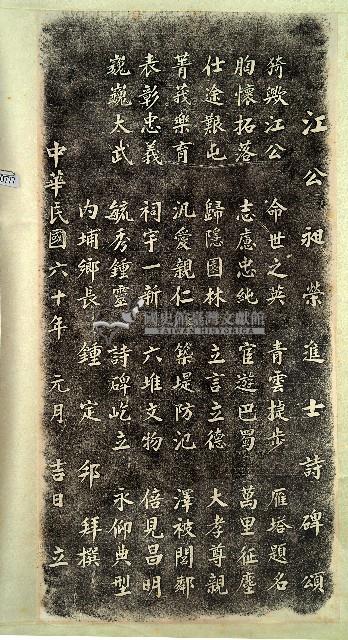 江公昶榮進士詩碑頌
猗歟江公 命世之英 青雲捷步 雁塔題名
胸懷拓落 志慮忠純 宦遊巴蜀 萬里征塵
仕途艱屯 歸隱園林 立言立德 大孝尊親
菁莪樂育 汎愛親仁 築堤防氾 澤被閭鄰
表彰忠義 祠宇一新 六堆文物 倍見昌明
巍巍大武 毓秀鍾靈 詩碑屹立 永仰典型
內埔鄉長 鍾定邦 拜撰
中華民國六十年 元月 吉日 立
國史館臺灣文獻館
TAIWAN HISTORICA